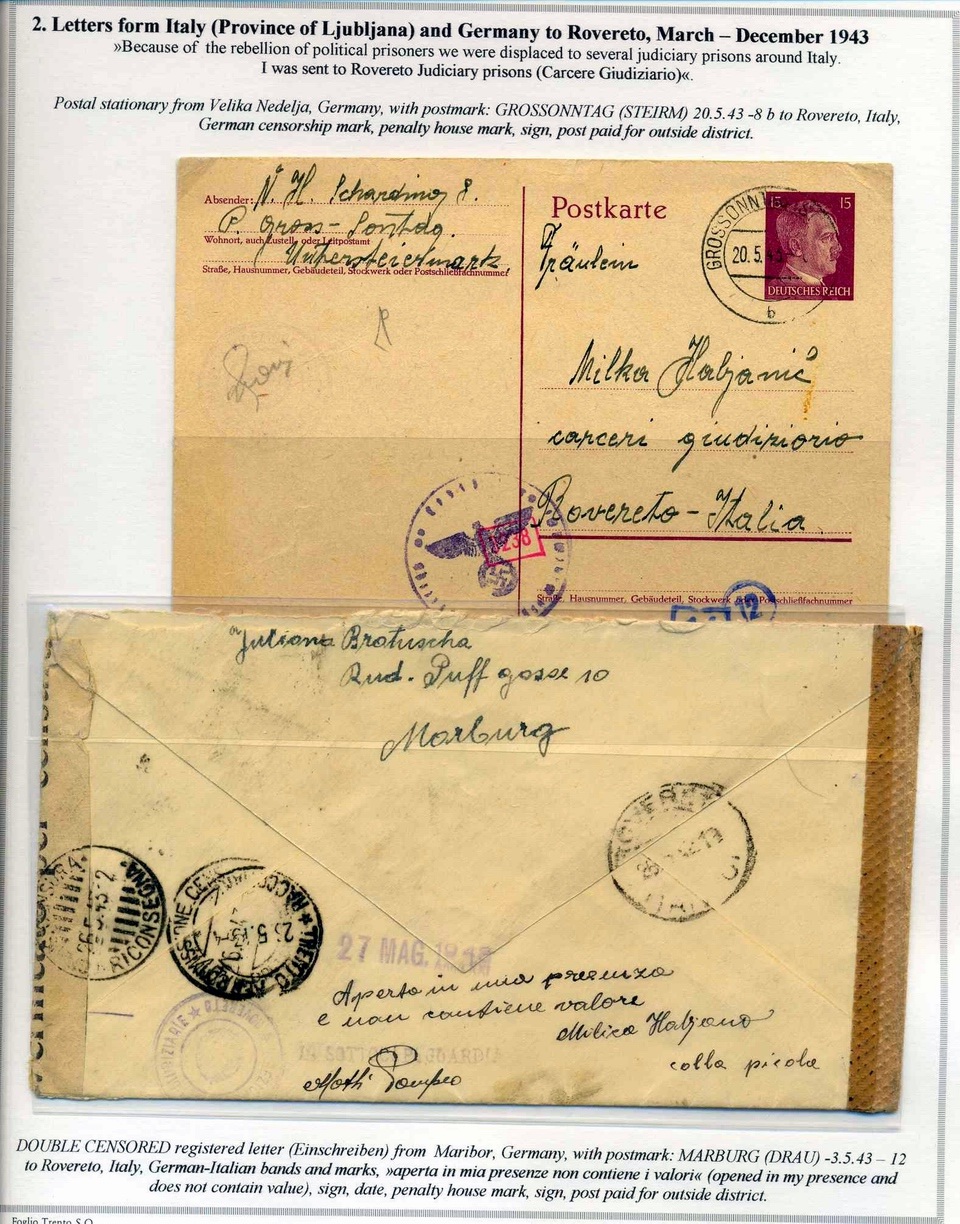 2. Letters form Italy (Province of Ljubljana) and Germany to Rovereto, March – December 1943
»Because of the rebellion of political prisoners we were displaced to several judiciary prisons around Italy.
I was sent to Rovereto Judiciary prisons (Carcere Giudiziario)«.
Postal stationary from Velika Nedelja, Germany, with postmark: GROSSONNTAG (STEIRM) 20.5.43 -8 b to Rovereto, Italy,
German censorship mark, penalty house mark, sign, post paid for outside district.
Absender: N. H. Scharding
P. Gross-Sontag.
Wohnort, auch Zustell- oder Leitpostamt
Untersteiermark
Straße, Hausnummer, Gebäudeteil, Stockwerk oder Postschließfachnummer
Postkarte
15 15
DEUTSCHES REICH
GROSSONN
20.5.43
b
Fräulein
Milka Habjanič
carceri giudiziorio
Rovereto - Italia
1238
Straße, Hausnummer, Gebäudeteil, Stockwerk oder Postschließfachnummer
12
Juliana Bratuscha
Rud. Puff gasse 10
Marburg
RICONSEGNA
TRENTO
27 MAG. 1943
Aperto in mia presenza
e non contiene valore
Milica Habjanič
colla picola
IL SOTTOCAPO GUARDIA
Motti Pompeo
DOUBLE CENSORED registered letter (Einschreiben) from Maribor, Germany, with postmark: MARBURG (DRAU) -3.5.43 – 12
to Rovereto, Italy, German-Italian bands and marks, »aperta in mia presenze non contiene i valori« (opened in my presence and
does not contain value), sign, date, penalty house mark, sign, post paid for outside district.
Foglio Trento S.O.